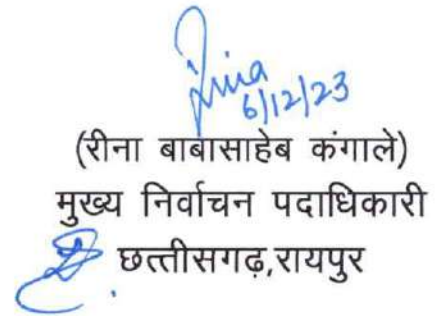 6/12/23
(रीना बाबासाहेब कंगाले)
मुख्य निर्वाचन पदाधिकारी
छत्तीसगढ़,रायपुर